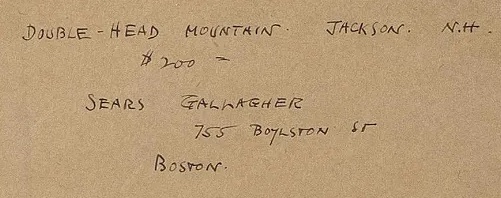 DOUBLE-HEAD MOUNTAIN. JACKSON. N.H.
$200 —
SEARS GALLAGHER
755 BOYLSTON ST
BOSTON.